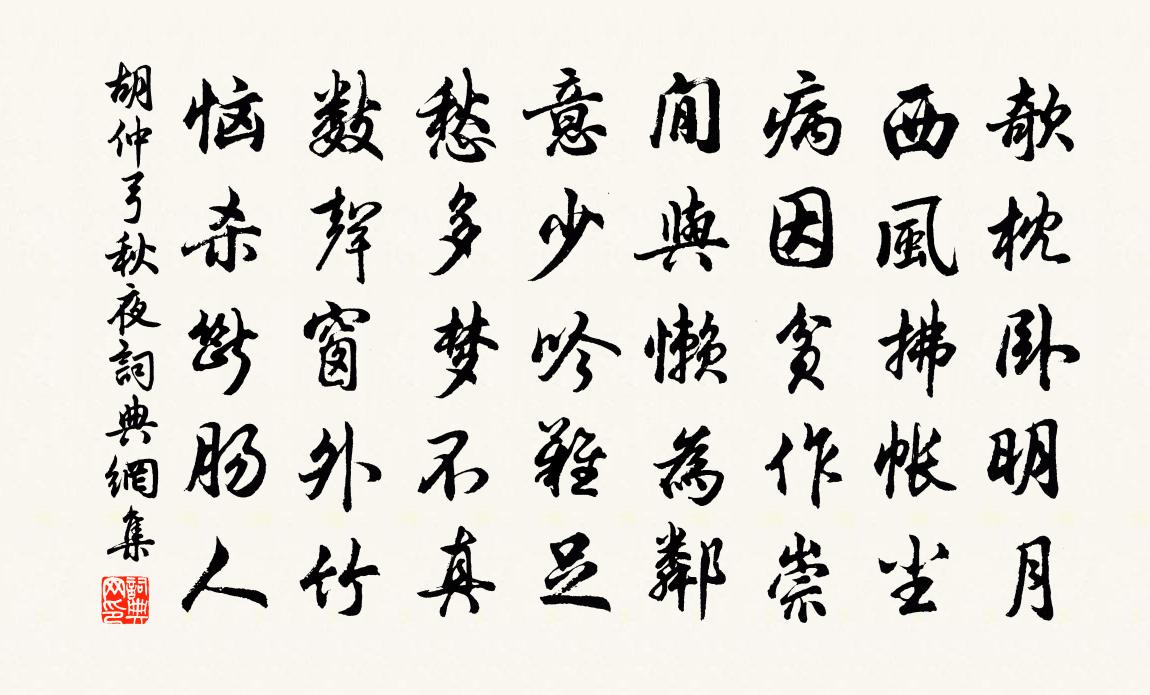 欹枕卧明月
西風拂帳尘
病因貧作祟
閒與懶為鄰
意少吟難足
愁多梦不真
數聲窗外竹
恼杀斷肠人
胡仲弓秋夜詞典網集
詞典网印